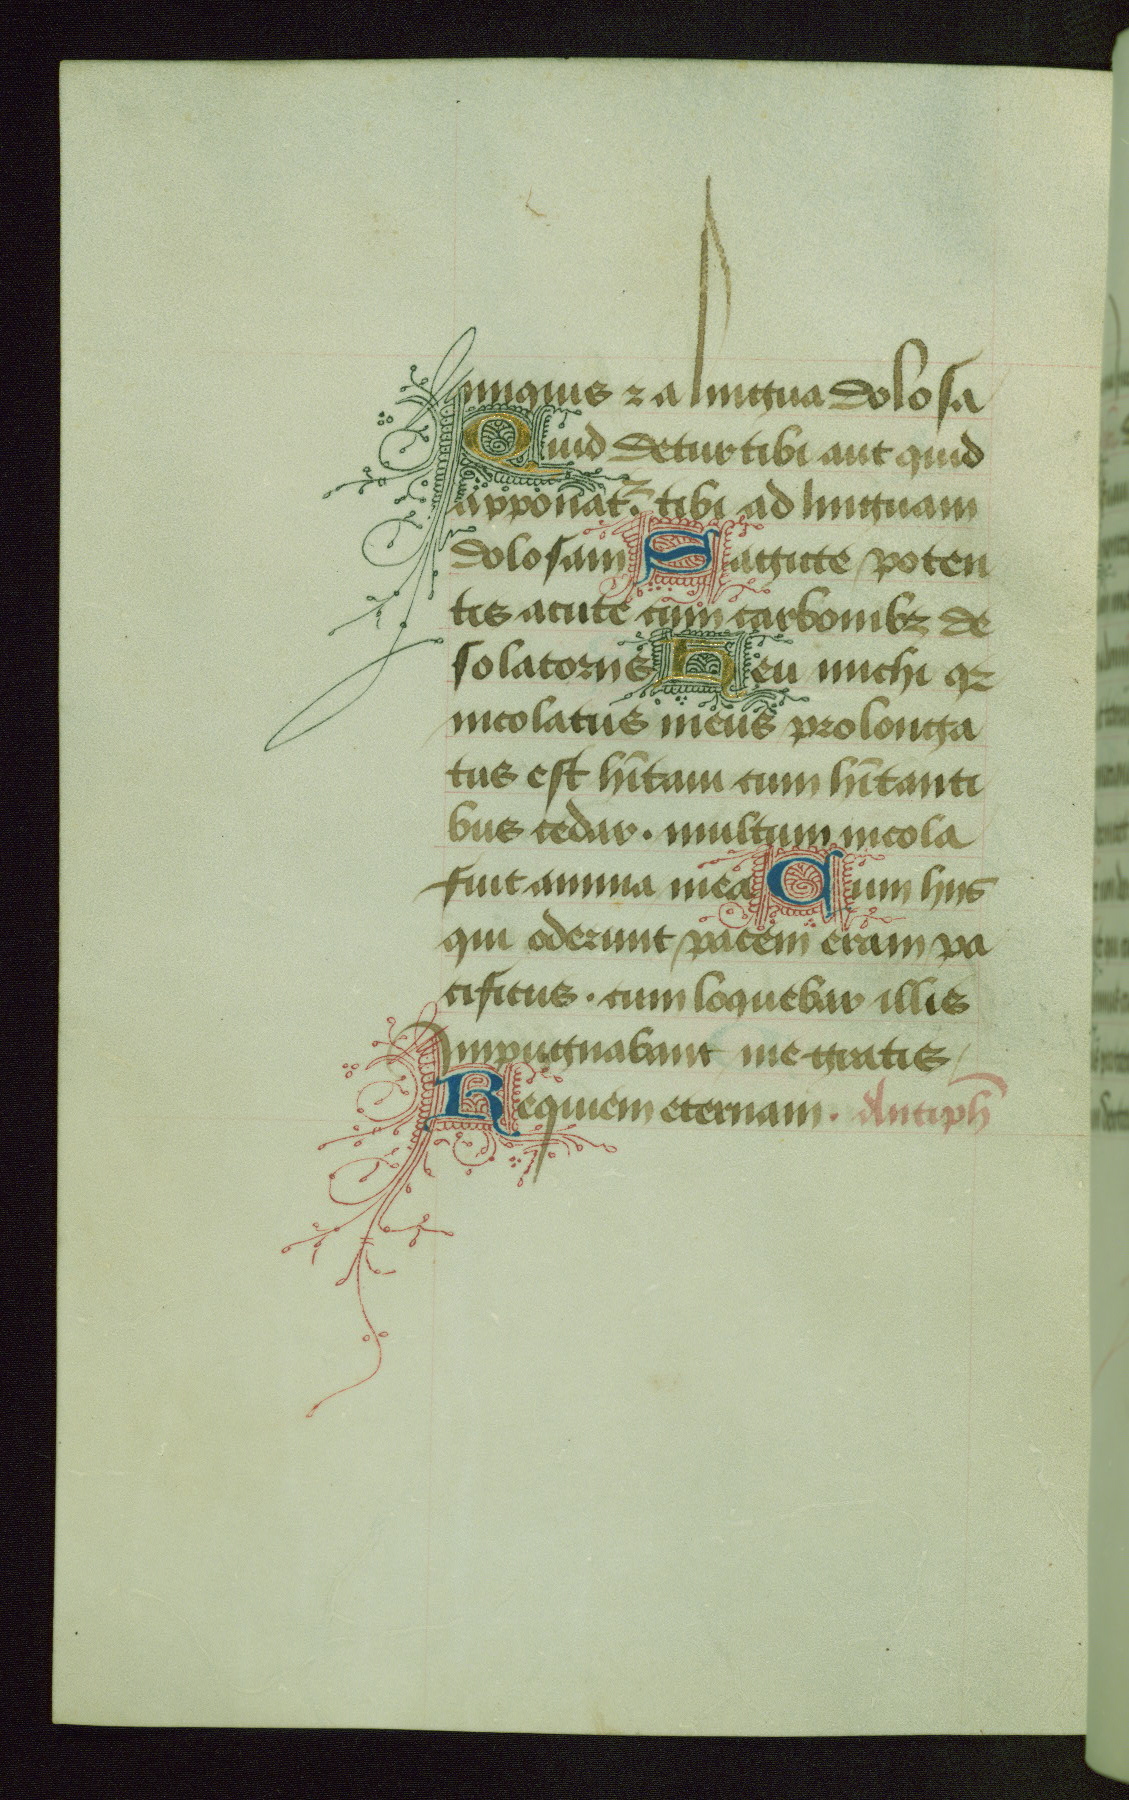 iniquis ⁊ a lingua dolosa
Quid detur tibi aut quid
apponat᷑ tibi ad linguam
dolosam Sagitte poten
tis acute cum carbonibꝫ de
solatoriis Heu michi qꝛ
incolatus meus prolonga
tus est hītaui cum hītanti
bus cedar . multum incola
fuit anima mea Cum hiis
qui oderunt pacem eram pa
cificus . cum loquebar illis
Impugnabant me gratis
Requiem eternam . Antiph